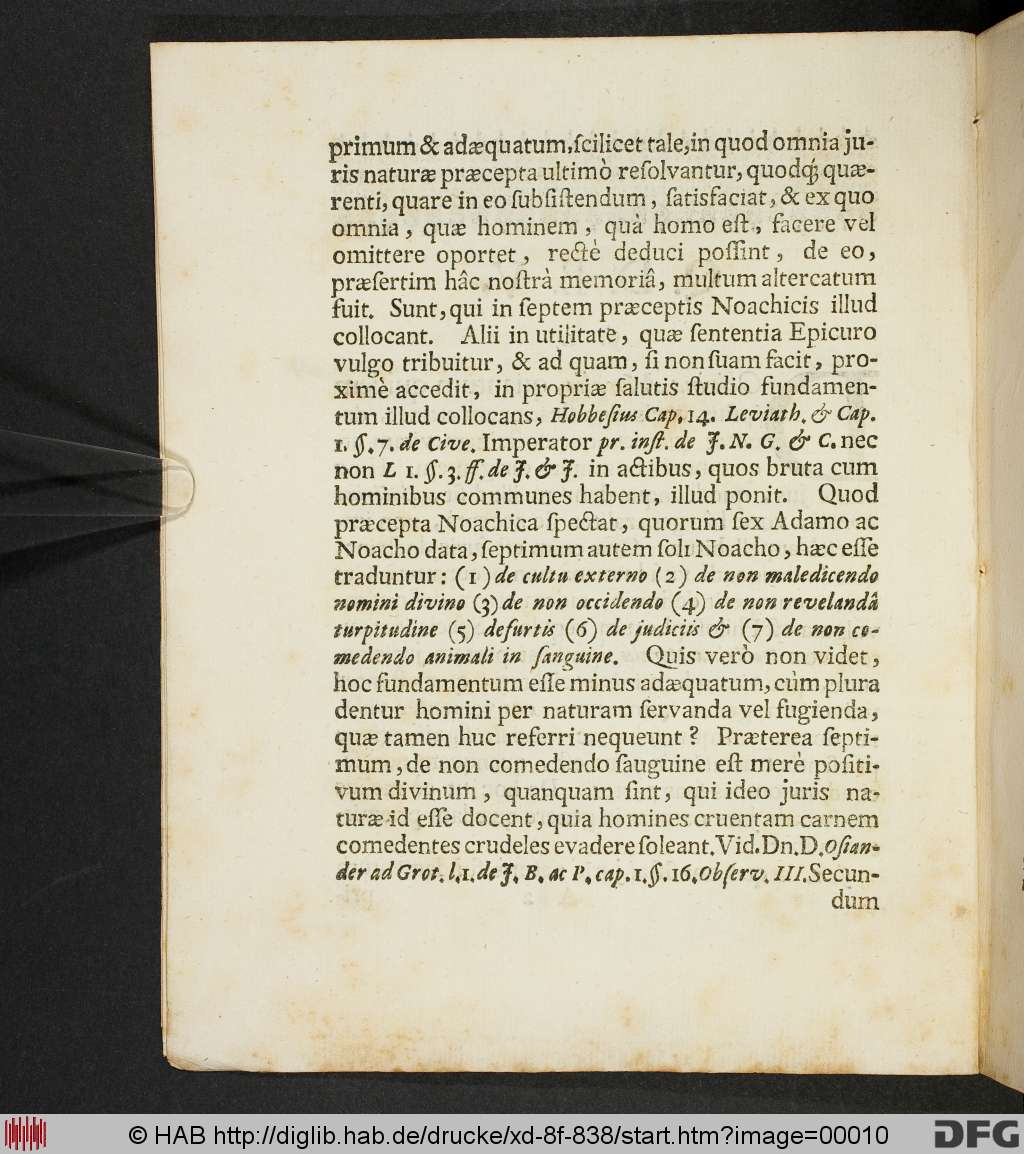 primum & adæquatum, ſcilicet tale, in quod omnia ju-
ris naturæ præcepta ultimò reſolvantur, quodq́; quæ-
renti, quare in eo ſubſiſtendum, ſatisfaciat, & ex quo
omnia, quæ hominem, quà homo eſt, facere vel
omittere oportet, rectè deduci poſſint, de eo,
præſertim hâc noſtrà memoriâ, multum altercatum
fuit. Sunt, qui in ſeptem præceptis Noachicis illud
collocant. Alii in utilitate, quæ ſententia Epicuro
vulgo tribuitur, & ad quam, ſi non ſuam facit, pro-
ximè accedit, in propriæ ſalutis ſtudio fundamen-
tum illud collocans, Hobbeſius Cap. 14. Leviath. & Cap.
1. §. 7. de Cive. Imperator pr. inſt. de J. N. G. & C. nec
non L 1. §. 3. ff. de J. & J. in actibus, quos bruta cum
hominibus communes habent, illud ponit. Quod
præcepta Noachica ſpectat, quorum ſex Adamo ac
Noacho data, ſeptimum autem ſoli Noacho, hæc eſſe
traduntur: (1) de cultu externo (2) de non maledicendo
nomini divino (3) de non occidendo (4) de non revelandâ
turpitudine (5) de furtis (6) de judiciis & (7) de non co-
medendo animali in ſanguine. Quis verò non videt,
hoc fundamentum eſſe minus adæquatum, cùm plura
dentur homini per naturam ſervanda vel fugienda,
quæ tamen huc referri nequeunt? Præterea ſepti-
mum, de non comedendo ſauguine eſt merè poſiti-
vum divinum, quanquam ſint, qui ideo juris na-
turæ id eſſe docent, quia homines cruentam carnem
comedentes crudeles evadere ſoleant. Vid. Dn. D. Oſian-
der ad Grot. l. 1. de J. B. ac P. cap. 1. §. 16. Obſerv. III. Secun-
dum
© HAB http://diglib.hab.de/drucke/xd-8f-838/start.htm?image=00010
DFG